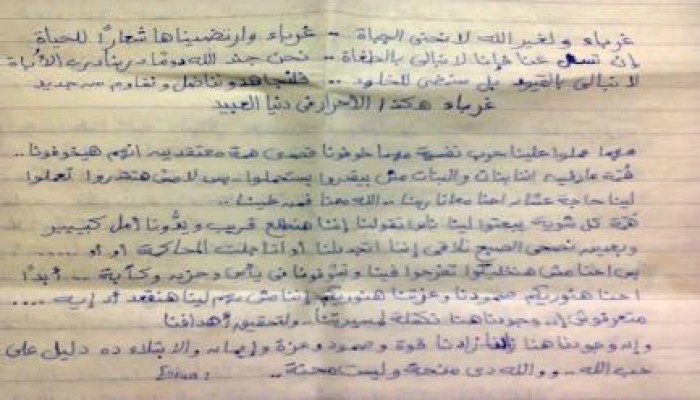 غرباء ولغير الله لا نحنى الجباة .. غرباء وارتضيناها شعارًا للحياة
إن تسل عنا فإنا لا نبالى بالطغاة .. نحن جند الله دومًا دربنا درب الأباة
لا نبالى بالقيود بل سنمضى للخلود .. فلنجاهد ونناضل ونقاوم من جديد
غرباء هكذا الأحرار فى دنيا العبيد
مهما عملوا علينا حرب نفسية مهما خوفونا فهمى همة معتقدين انهم هيخوفونا ..
همة عارفين اننا بنات والبنات مش بيقدروا يستحملوا .. بس لا مش هتقدروا تعملوا
لينا حاجة عشان احنا معانا ربنا .. الله معنا فمن علينا ..
همة كل شوية يبعتوا لينا ناس تقولنا إننا هنطلع قريب ويدُّونا أمل كبيييير
وبعدين نصحى الصبح نلاقى إننا اتجددلنا أو اتأجلت المحاكمة أو أو .....
بس احنا مش هنخليكوا تفرحوا فينا وتعرفونا فى يأس وحزن وكآبة ... أبدًا
احنا هنوريكم صمودنا وعزتنا هنوريكم إننا مش مهم لينا هنقعد أد إيه ....
متعرفوش إن وجودنا هنا تكملة لمسيرتنا .. ولتحقيق أهدافنا
وإن وجودنا هنا زادنا قوة وصمود وعزة وإيمان والابتلاء ده دليل على
حب الله .. ووالله دى منحة وليست محنة ..